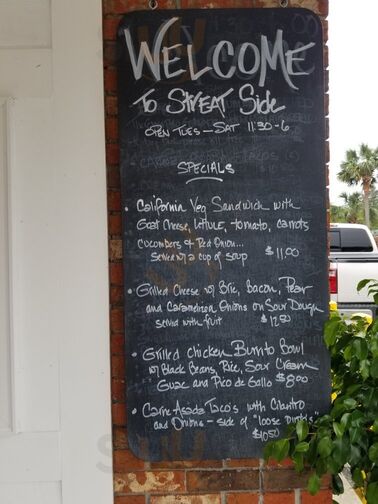 WELCOME
To StrEAT Side
OPEN TUES - SAT 11:30-6
SPECIALS
• California Veg Sandwich with
Goat Cheese, Lettuce, tomato, carrots
cucumbers & Red Onion...
served w/ a cup of soup $11.00
• Grilled Cheese w/ Brie, Bacon, Pear
and Caramelized Onions on Sour Dough
served with fruit $12.50
• Grilled chicken Burrito Bowl
w/ Black Beans, Rice, Sour Cream
Guac and Pico de Gallo $8.00
• Carne Asada Taco's with Cilantro
and Onions - side of "loose
$10.50